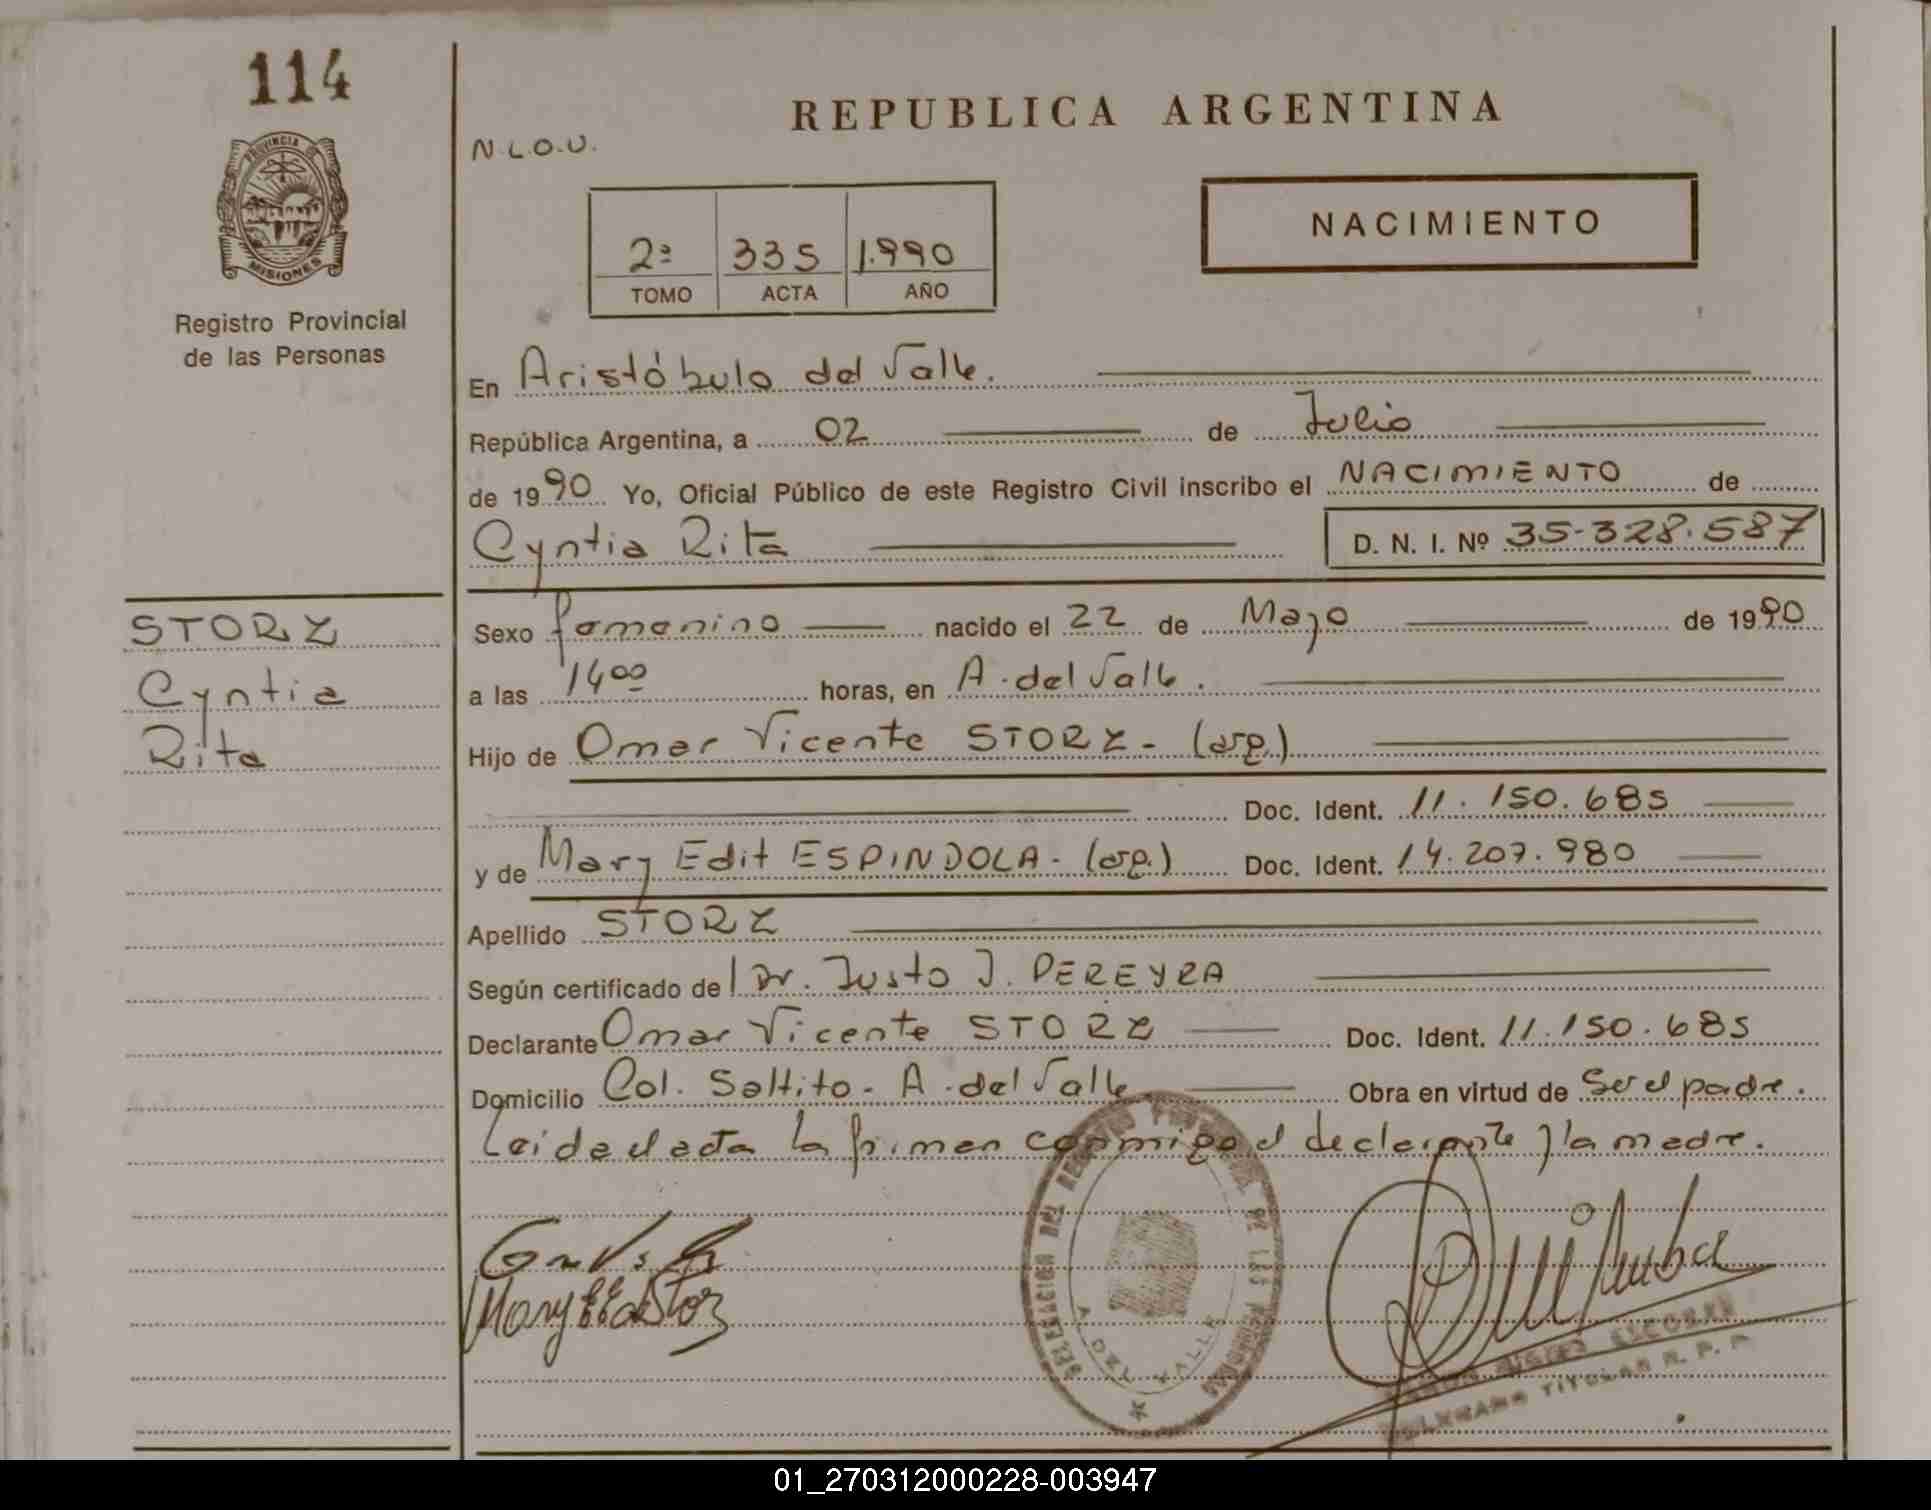 114
REPUBLICA ARGENTINA
N.L.O.U.
PROVINCIA DE
MISIONES
NACIMIENTO
2ª 335 1.990
TOMO ACTA AÑO
Registro Provincial
de las Personas
En Aristóbulo del Valle.
República Argentina, a 02 de Julio
de 1990 Yo, Oficial Público de este Registro Civil inscribo el NACIMIENTO de
Cyntia Rita D. N. I. Nº 35.328.587
STORZ
Cyntia
Rita
Sexo femenino nacido el 22 de Mayo de 1990
a las 1400 horas, en A. del Valle.
Hijo de Omar Vicente STORZ - (arg.)
Doc. Ident. 11.150.685
y de Mary Edit ESPINDOLA - (arg.) Doc. Ident. 14.207.980
Apellido STORZ
Según certificado de Dr. Justo J. PEREYRA
Declarante Omar Vicente STORZ Doc. Ident. 11.150.685
Domicilio Col. Saltito - A. del Valle Obra en virtud de Ser el padre.
Leida el acta la firman conmigo el declarante y la madre.
DELEGACION DEL REGISTRO PROVINCIAL DE LAS PERSONAS
A. DEL VALLE
ESCOBAR
TITULAR R. P. P.
01_270312000228-003947